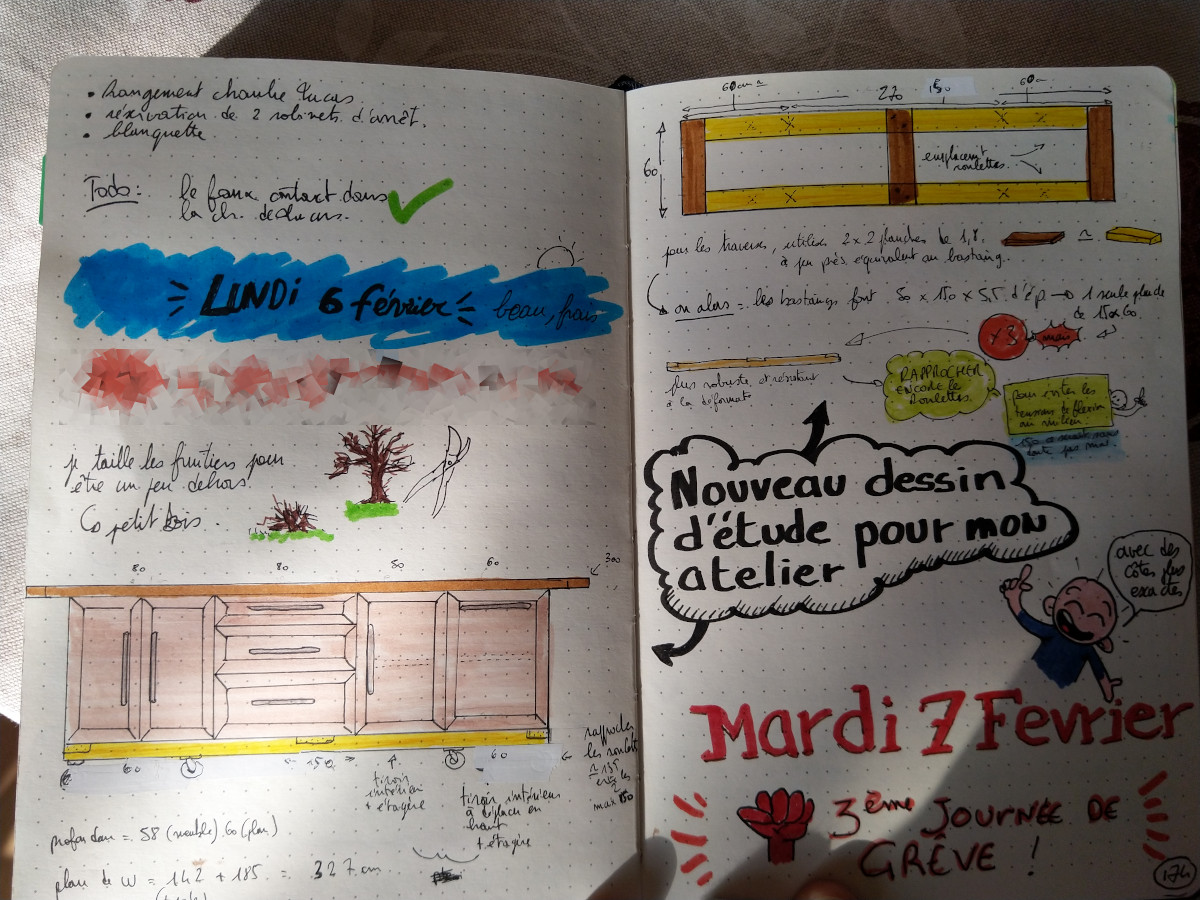 • changement chambre Lucas
• rénovation de 2 robinets d'arrêt.
• blanquette
Todo : le faux contact dans
la ch. de Lucas.
LUNDI 6 février beau, frais
je taille les fruitiers pour
être un peu dehors
petit bois.
80 80 50 60 300
60 150 60
tiroir
intérieur
+ étagère
tiroir intérieur
à déplacer en
haut
+ étagère
rapprocher
les
max 150
profondeur = 58 (meuble) 60 (plan)
plan de W = 142 + 185 = 327 cm
60cm 270 150 60
60
emplacement
roulettes
pour les traverses, utiliser 2 x 2 planches de 1,8.
à peu près équivalent au bastaing.
ou alors = les bastaings font 50 x 150 x 5,5 d'ép → 1 seule
de 150x60
x 3 mais
plus robuste et résistant
à la déformat°
RAPPROCHER
ENCORE le
Roulettes.
pour éviter les
tensions de flexion
au milieu.
150
Nouveau dessin
d'étude pour mon
atelier
avec des
côtes plus
exactes
Mardi 7 Fevrier
3ème JOURNÉE DE
GRÈVE !
174